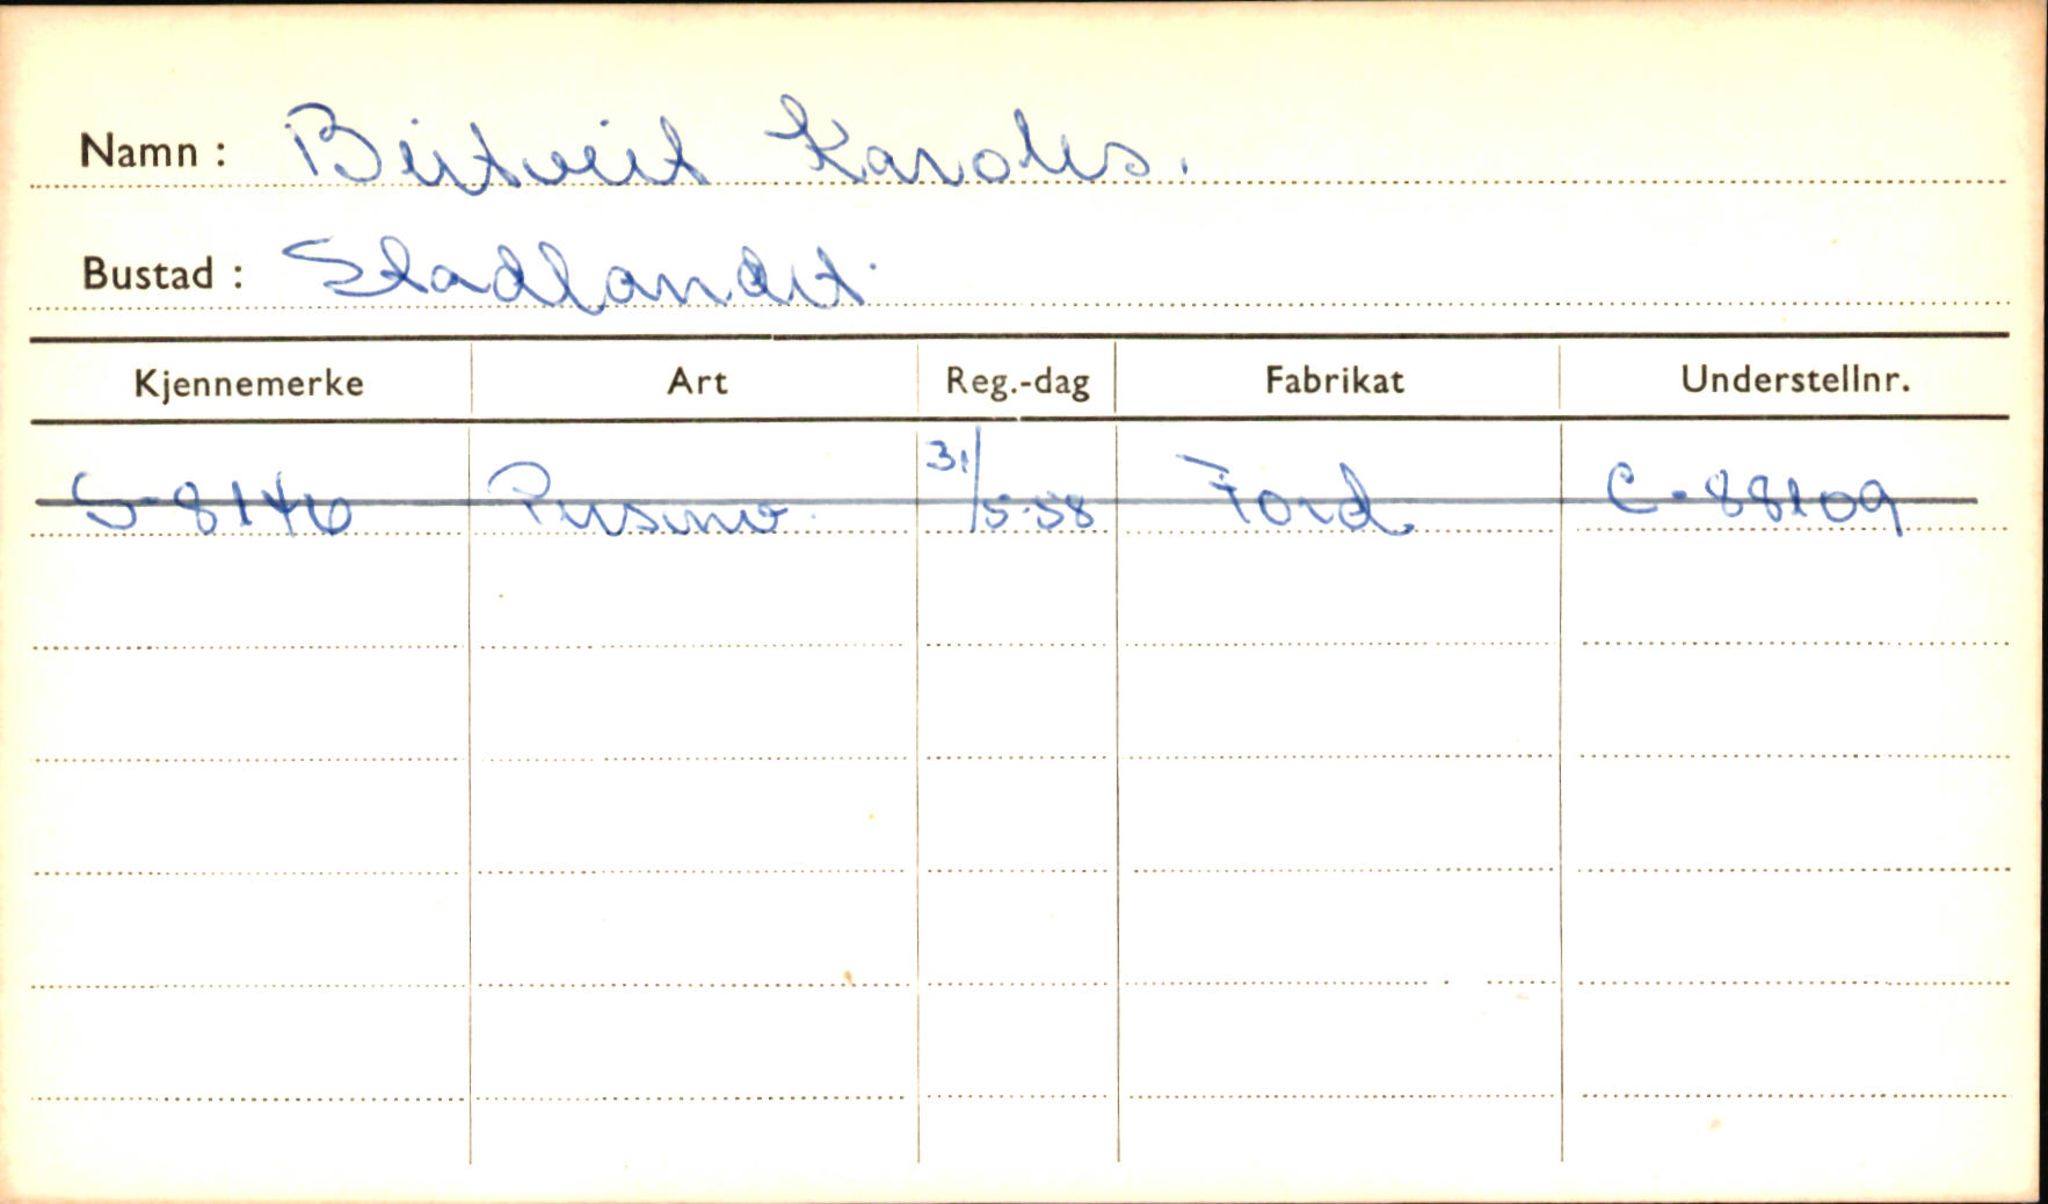 Namn : Beitveit Karoles.
Bustad : Stadlandet.
Kjennemerke Art Reg.-dag Fabrikat Understellnr.
S-8146 Persmo. 31/5-58 Ford C-88109